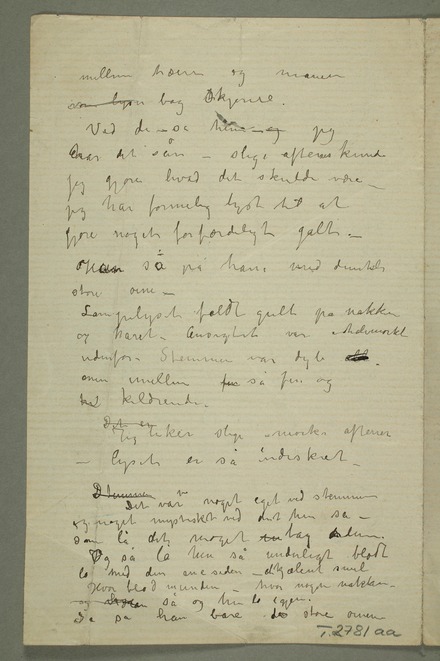 mellem hænn og manen
som lyset bag Skyerne.
Vad de - så henne og jeg
har det sån - slige aftener kunde
jeg gjøre hvad det skulde være -
jeg har formelig lyst til at
gjøre noget forfærdeligt galt -
så på hans med dunkle
store øine -
Lampelyset faldt gult på nakken
og haret. Ansigtet var
udenfor Stemmen var dyb
men imellem så fin og
kildrende.
Det er
Jeg liker slige mørke aftener
- lyset er så indiskret -
Stemmen
Det var noget eget ved stemmen
og noget mystiskt ved det hun sa -
som lå det noget bag
Og så lo hun så underligt blødt
lo med den ene siden - smil
Hvor blød munden - hvor nogen nakken -
og så og hun lo igjen.
Då så han bare de store øinene
T.2781 aa